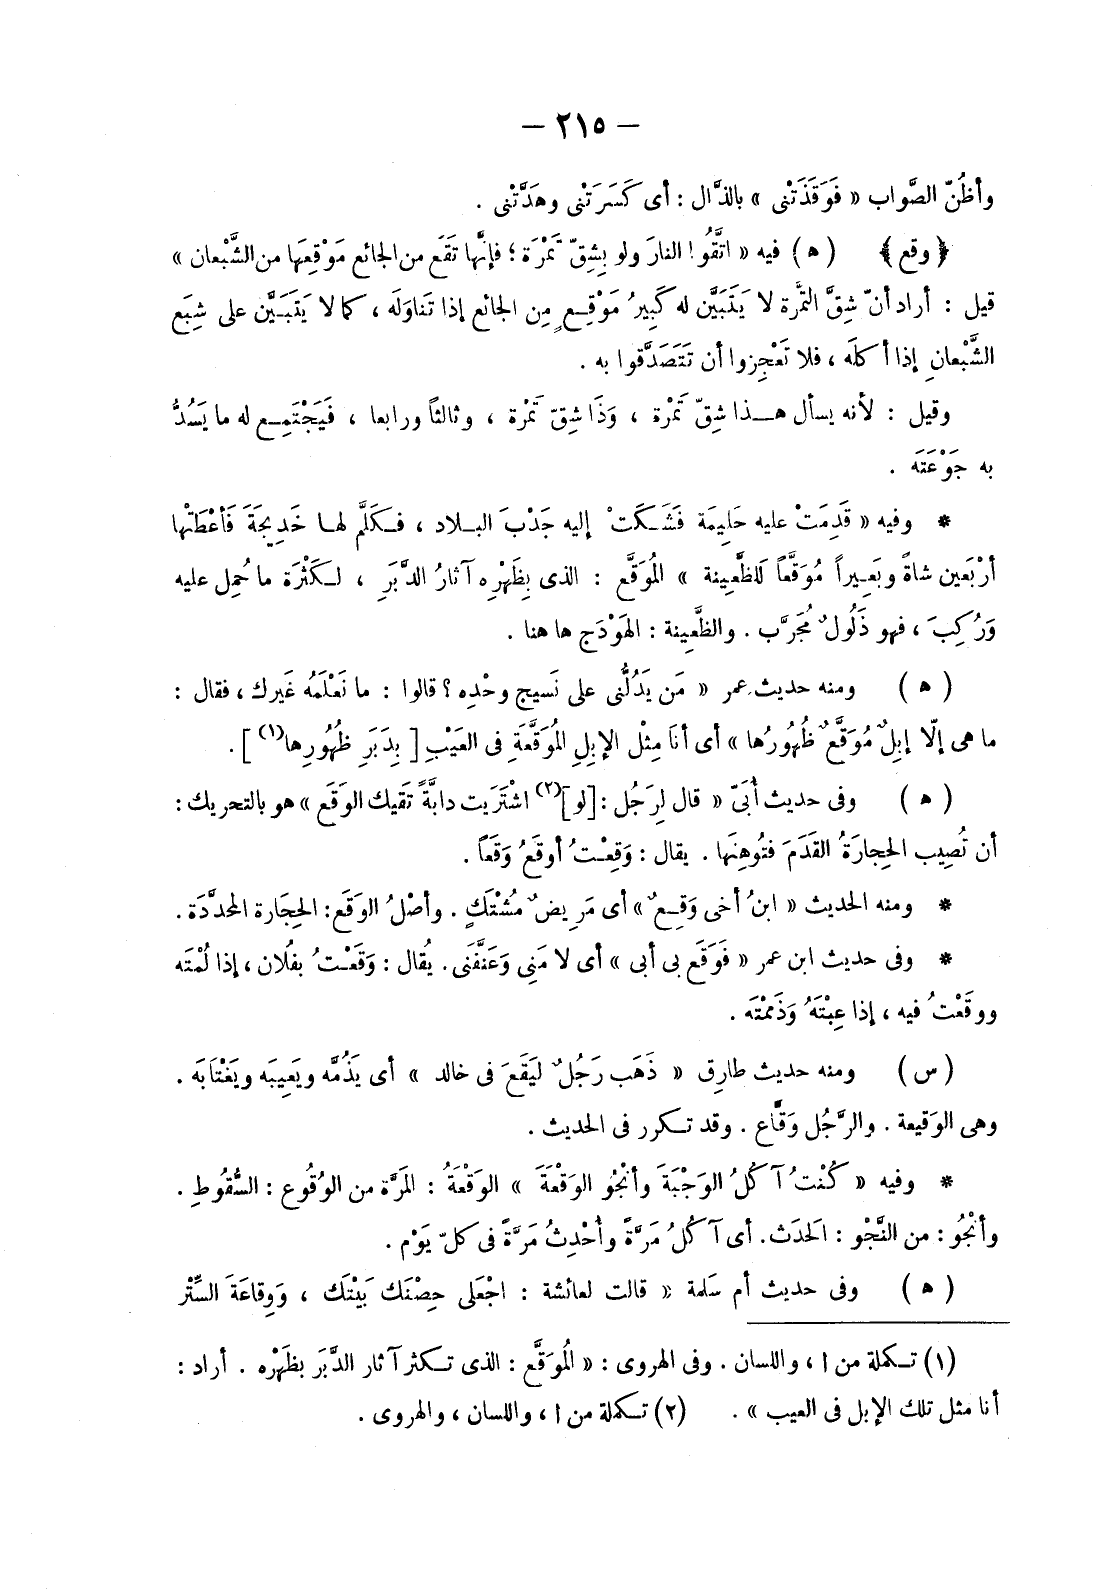 — ٢١٥ —
وأظُنّ الصَّواب « فَوَقَذَتْنى » بالذَّال : أى كَسَرَتْنى وهَدَّتْنى .
﴿ وقع ﴾ ( ه ) فيه « اتَّقُوا النارَ ولو بِشِقّ تَمْرَة ؛ فإنَّها تَقَع من الجائع مَوْقِعَها من الشَّبْعان »
قيل : أراد أنّ شِقَّ التَّمرة لا يَتَبَيَّن له كَبِيرُ مَوْقِـعٍ مِن الجائع إذا تَناوَلَه ، كما لا يَتَبَـيَّن على شِبَع
الشَّبْعانِ إذا أكلَه ، فلا تَعْجِزوا أن تَتَصَدَّقوا به .
وقيل : لأنه يسأل هـذا شِقّ تَمْرَة ، وَذَا شِقّ تَمْرة ، وثالثاً ورابعا ، فَيَجْتَمِـع له ما يَسُدُّ
به جَوْعَتَه .
* وفيه « قَدِمَتْ عليه حَلِيمَة فَشَـكَتْ إليه جَدْبَ البـلاد ، فـكَلَّم لهـا خَدِيجَةَ فَأعْطَتْها
أرْبَعين شاةً وبَعِـيراً مُوَقَّعاً لِلظَّعِينة » المُوَقَّع : الذى بِظَهْرِه آثارُ الدَّبَرِ ، لـكَثْرَة ما حُمِل عليه
وَرُكِبَ ، فهو ذَلُولٌ مُجَرَّب . والظَّعِينة : الهَوْدَج ها هنا .
( ه ) ومنه حديث عمر « مَن يَدُلُّنى على نَسيج وحْدِه ؟ قالوا : ما نَعْلَمُه غَيرك ، فقال :
ما هى إلّا إبِلٌ مُوَقَّعٌ ظُهُورُها » أى أنَا مِثْل الإبِلِ المُوَقَّعَةِ فى العَيْبِ [ بِدَبَرِ ظُهُورِها(١) ] .
( ه ) وفى حديث أُبَىّ « قال لِرَجُل : [لو](٢) اشْتَرَيت دابَّةً تَقيك الوَقَع » هو بالتحريك :
أن تُصِيب الحِجارَةُ القَدَمَ فتُوهِنَها . يقال : وَقِعْـتُ أوقَعُ وَقَعاً .
* ومنه الحديث « ابنُ أخى وَقِـعٌ » أى مَرِيضٌ مُشْتَكٍ . وأصْلُ الوَقَع : الحِجَارة المحدَّدَة .
* وفى حديث ابن عمر « فَوَقَع بى أبى » أى لامَنِى وَعَنَّفَنى . يقال : وَقَعْـتُ بفُلان ، إذا لُمْتَه
ووقَعْتُ فيه ، إذا عِبْتَهُ وَذَمَمْتَه .
( س ) ومنه حديث طارِق « ذَهَب رَجُلٌ لِيَقَعَ فى خالد » أى يَذُمَّه ويَعِيبَه ويَغْتَابَه .
وهى الوَقيعة . والرَّجُل وَقَّاع . وقد تـكرر فى الحديث .
* وفيه « كُنْتُ آكُلُ الوَجْبَةَ وأنْجُو الوَقْعَةَ » الوَقْعَةُ : المَرَّة من الوُقُوع : السُّقُوطِ .
وأنْجُو : من النَّجْو : الحَدَث. أى آكُلُ مَرَّةً وأُحْدِثُ مَرَّةً فى كلّ يَوْم .
( ه ) وفى حديث أم سَلمة « قالت لعائشة : اجْعَلى حِصْنَك بَيْتَك ، وَوِقاعَةَ السِّتْر
(١) تـكملة من ا ، واللسان . وفى الهروى : « المُوَقَّع : الذى تـكثر آثار الدَّبَر بظَهْره . أراد :
أنا مثل تلك الإبل فى العيب » . (٢) تـكملة من ا ، واللسان ، والهروى .